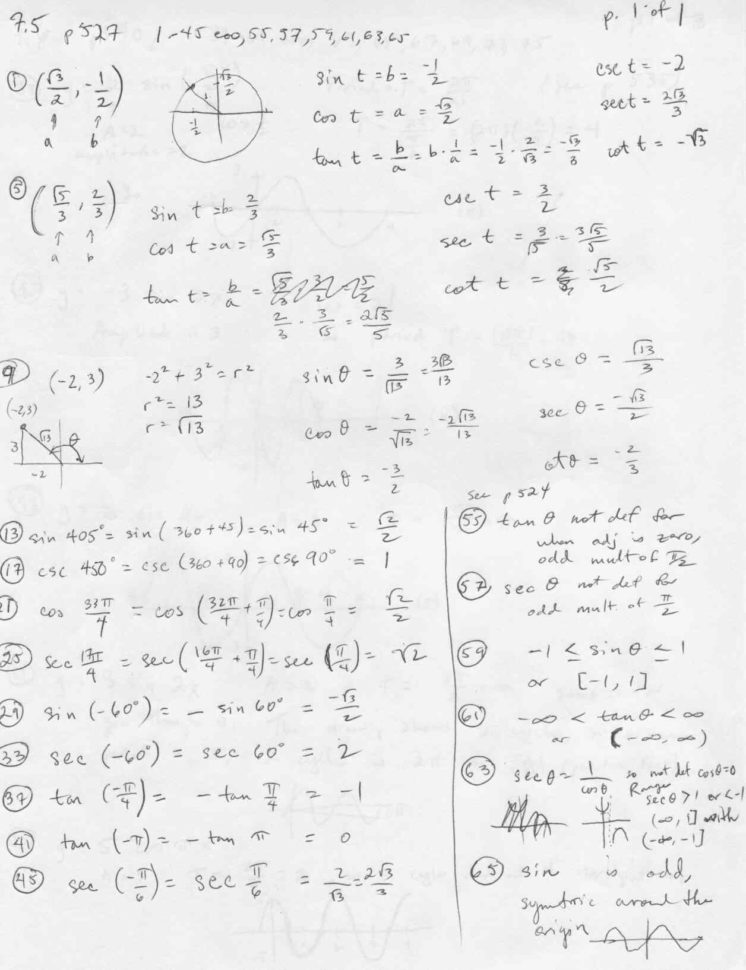 7.5 p527 1-45 eoo, 55, 57, 59, 61, 63, 65
p. 1 of 1
① (√3/2, -1/2)
a b
√3/2
-1/2
sin t = b = -1/2
cos t = a = √3/2
tan t = b/a = b·1/a = -1/2 · 2/√3 = -√3/3
csc t = -2
sec t = 2√3/3
cot t = -√3
⑤ (√5/3, 2/3)
a b
sin t = b = 2/3
cos t = a = √5/3
tan t = b/a =
2/3 · 3/√5 = 2√5/5
csc t = 3/2
sec t = 3/√5 = 3√5/5
cot t = √5/2
⑨ (-2, 3)
(-2,3)
3 √13 θ
-2
-2² + 3² = r²
r² = 13
r = √13
sin θ = 3/√13 = 3√13/13
cos θ = -2/√13 = -2√13/13
tan θ = -3/2
csc θ = √13/3
sec θ = -√13/2
cot θ = -2/3
⑬ sin 405° = sin (360+45) = sin 45° = √2/2
⑰ csc 450° = csc (360+90) = csc 90° = 1
㉑ cos 33π/4 = cos (32π/4 + π/4) = cos π/4 = √2/2
㉕ sec 17π/4 = sec (16π/4 + π/4) = sec (π/4) = √2
㉙ sin (-60°) = - sin 60° = -√3/2
㉝ sec (-60°) = sec 60° = 2
㊲ tan (-π/4) = - tan π/4 = -1
㊶ tan (-π) = - tan π = 0
㊺ sec (-π/6) = sec π/6 = 2/√3 = 2√3/3
see p 524
(55) tan θ not def for
when adj is zero,
odd mult of π/2
(57) sec θ not def for
odd mult. of π/2
(59) -1 ≤ sin θ ≤ 1
or [-1, 1]
(61) -∞ < tan θ < ∞
or (-∞, ∞)
(63) sec θ = 1/cos θ so not def cos θ=0
Range
sec θ > 1 or < -1
(∞, 1] with
(-∞, -1]
(65) sin is odd,
symtric around the
origin